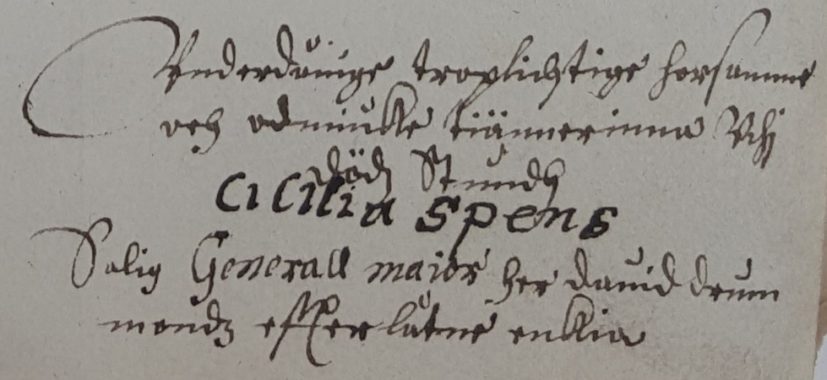 Vnderdånige troplichtige horsamme
och odmiukke tiännerinna Vthi
döds Stundh
Cicilia Spens
Salig Generall maior her dauid drum
mondz effterlåtne enkkia